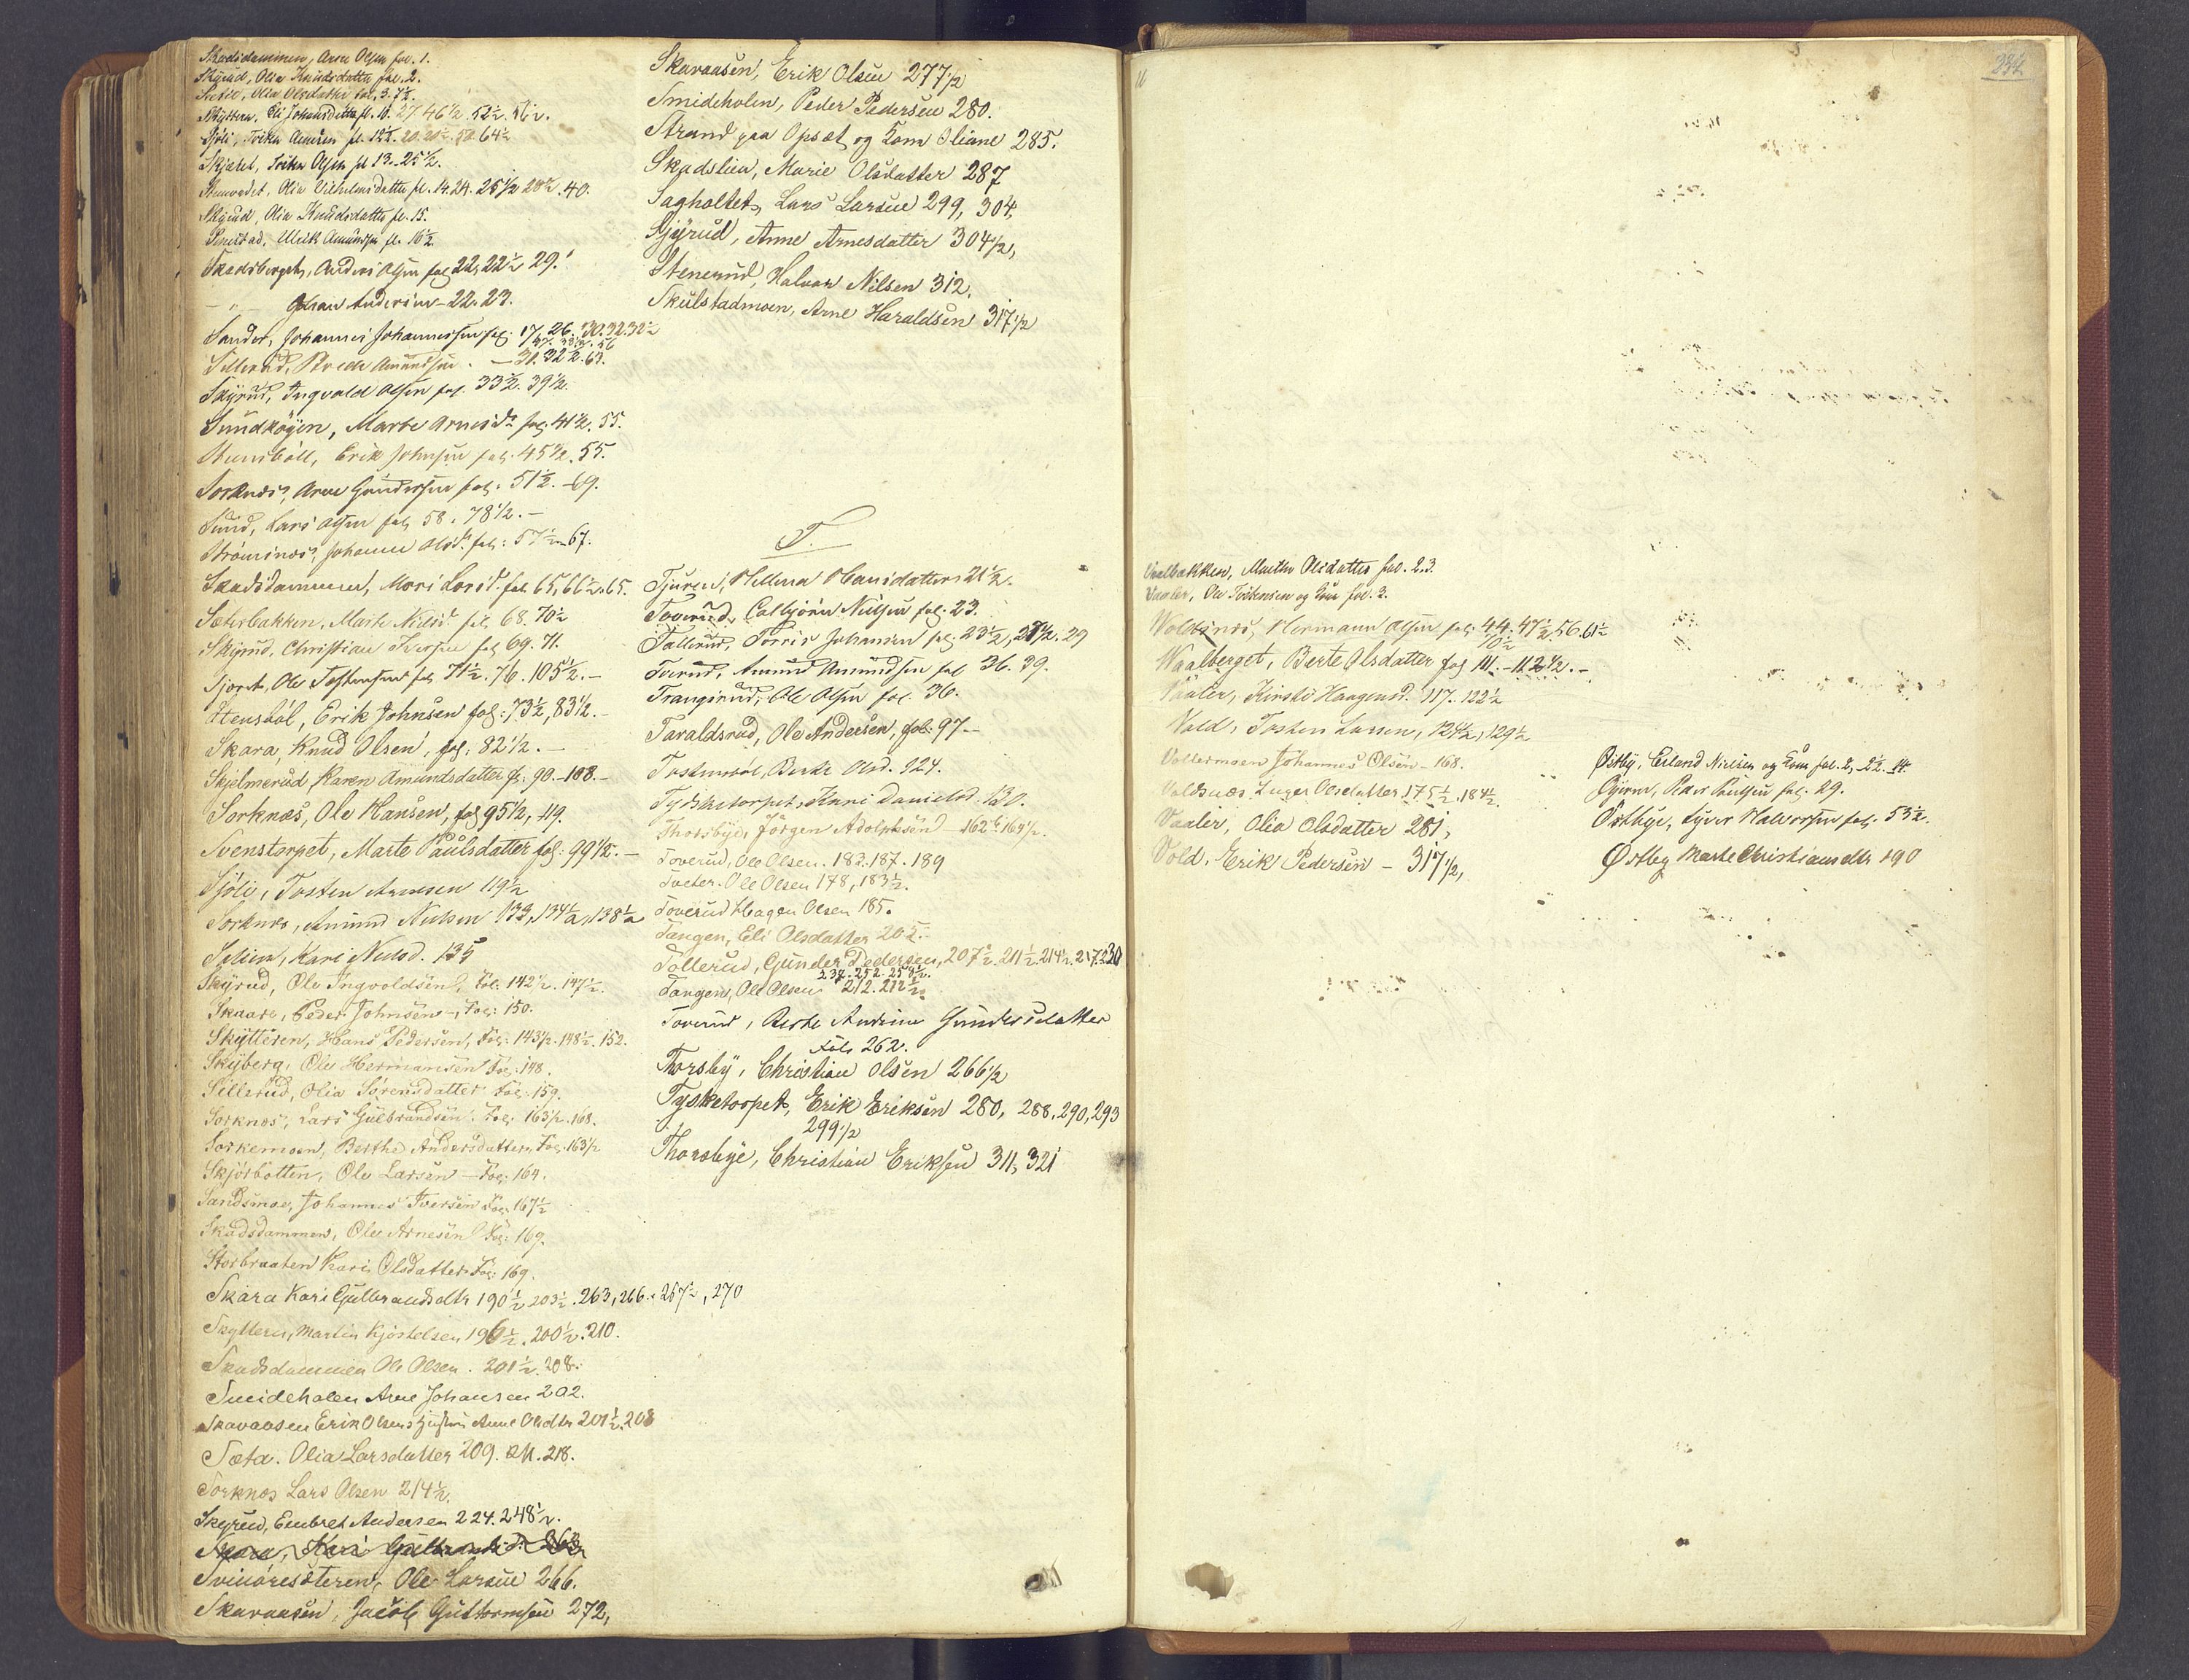 Skadsdammen, Arne Olsen fol. 1.
Skÿrud, Olia Knudsdatter fol. 2.
Olia Olsdatter fol. 3. 7½.
Skÿttern. Eli Johansdatter fl. 10. 27 46½. 52½. 56½.
Sjöli, Amesen fl. 12½. 20. 20½. 52. 64½
Skjæret, Olsen fl. 13. 25½.
Olia Vilhelmsdatter fl. 14. 24. 25½ 28½. 40.
Skÿrud, Olia Knudsdatter fl. 15.
Amundsen fl. 16½
Skadsberget, Anders Olsen fol 22, 22½ 29.
— " — Johan Andersen - 22. 23.
Sander, Johannes Johannessen fol: 17. 26. 30. 32. 32½
37. 38½. 56
Sillerud, Amundsen. — 31. 32½. 63.
Skÿrud, Ingvald Olsen fol. 33½. 39½.
Sundhöÿen, Marte Arnesdr fol: 41½. 55.
Stensböll, Erik Johnsen fol. 45½. 55.
Sorknæs, Arne Gundersen fol: 51½. 69.
Sund, Lars Olsen fol 58. 78½. —
Strömsnæs, Johanne Olsdr. fol: 57½ 67.
Skadsdammen, Mari Larsd. fol. 65, 66½. 65.
Sæterbakken. Marte Nielsd. fol. 68. 70½
Skÿrud. Christian Iversen fol 69. 71.
Ole Tostensen fol 71½. 76. 105½. —
Stensböl, Erik Johnsen fol: 73½, 83½. —
Skara, Knud Olsen, fol: 82½. —
Skjelmerud Karen Amundsdatter fl: 90. — 108. —
Sorknæs, Ole Hansen, fol 95½, 119.
Svenstorpet, Marte Paulsdatter fol: 99½. —
Sjöli, Tosten Arnesen 119½
Sorknæs, Amund Nielsen 133, 134½, 138½
Kari Nielsd. 135
Skÿrud, Ole Ingvoldsen, Fol: 142½. 147½.
Skaare, Peder Johnsen —, Fol: 150.
Skÿtteren, Hans Pedersen, Fol: 143½. 148½. 152.
Skÿberg, Ole Hermansen Fol: 148.
Sillerud, Olia Sørensdatter Fol: 159.
Sorknæs, Lars Gulbrandsen. Fol: 163½. 168.
Sorkemoen, Berthe Andersdatter. Fol: 163½
Skjörbotten, Ole Larsen — Fol: 164.
Sandsmoe, Johannes Iversen Fol: 167½
Skadsdammen, Ole Arnesen Fol: 169.
Storbraaten Kari Olsdatter Fol: 169.
Skara Kari Gulbrandsdtr 190½ 203½. 263, 266. 267½, 270
Skytteren, Martin Kjöstelsen 196½. 200½. 210.
Skadsdammen Ole Olsen. 201½. 208.
Smideholen Arne Johansen 202.
Skavaasen Erik Olsens Hustru Anne Olsdtr 201½. 208
Sæta. Olia Larsdatter 209. 211. 218.
Sorknæs Lars Olsen 214½.
Skyrud, Embret Andersen 224. 248½.
Skara, Kari Gulbrandsd. 263
Svinöresæteren, Ole Larsen 266.
Skavaasen, Jacob Guttormsen 272,
Skavaasen, Erik Olsen 277½
Smideholen, Peder Pedersen 280.
Strand paa Opsæt og Kone Oliane 285.
Skadslien, Marie Olsdatter 287
Sagholtet, Lars Larsen 299, 304,
Sjÿrud, Anne Arnesdatter 304½,
Stenerud, Halvor Nilsen 312,
Skulstadmoen, Arne Haraldsen 317½
T.
Tjuren, Hellena Hansdatter 21½.
Toverud, Colbjörn Nielsen fol. 23.
Tollerud, Torris Johansen fol. 23½, 27½. 29
Amund Amundsen fol 36. 39.
Trangsrud, Ole Olsen fol. 36.
Taraldsrud, Ole Andersen, fol: 97 —
Tostensböl, Berte Olsd. 124.
Tydsketorpet, Karni Danielsd. 130.
Thorsbye, Jörgen Adolphsen — 162½ 164½.
Toverud, Ole Olsen. 183. 187. 189
Tveter. Ole Olsen 178, 183½.
Toverud Hagen Olsen 185.
Tangen, Eli Olsdatter 202.
Tollerud, Gunder Pedersen, 207½. 211½. 214½. 217. 230
237. 252. 258½.
Tangen, Ole Olsen 212. 212½.
Toverud, Berte Andrine Gundersdatter
Fol. 262.
Thorsby, Christian Olsen 266½
Tysketorpet, Erik Eriksen 280, 288, 290, 293
299½
Thorsbye, Christian Eriksen 311, 321
234
Vaalbakken, Marthe Olsdatter fol. 2. 3.
Vaaler, Ole Tostensen og Kone fol. 3.
Voldsnæs, Hermann Olsen fol: 44. 47½. 56. 61½
70½
Waalberget, Berte Olsdatter fol 111. — 112½. —
Vaaler, Kirsti Haagensd. 117. 122½
Vold, Tosten Larsen, 128½, 129½
Vollermoen Johannes Olsen — 168.
Voldsnæs Inger Olsdatter. 175½. 184½.
Vaaler, Olia Olsdatter 281,
Vold, Erik Pedersen — 317½,
Østby, Erland Nielsen og Kone fol. 2, 2½. 14.
fol. 29.
Østbye, Syver Halvorsen fol. 53½.
Østby Marte Christiansdtr 190